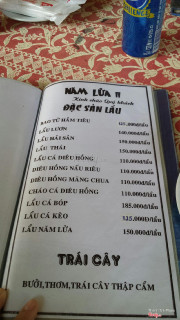 NĂM LỬA II
Kính chào Quý khách
ĐẶC SẢN LẨU
BAO TỬ HẦM TIÊU 125.000đ/lẩu
LẨU LƯƠN 160.000đ/lẩu
LẨU HẢI SẢN 150.000đ/lẩu
LẨU THÁI 150.000đ/lẩu
LẨU CÁ DIÊU HỒNG 110.000đ/lẩu
DIÊU HỒNG NẤU RIÊU 110.000đ/lẩu
DIÊU HỒNG MĂNG CHUA 110.000đ/lẩu
CHÁO CÁ DIÊU HỒNG 110.000đ/lẩu
LẨU CÁ BỚP 185.000đ/lẩu
LẨU CÁ KÈO 125.000Đ/lẩu
LẨU NĂM LỬA 150.000đ/lẩu
TRÁI CÂY
BƯỞI,THƠM,TRÁI CÂY THẬP CẨM